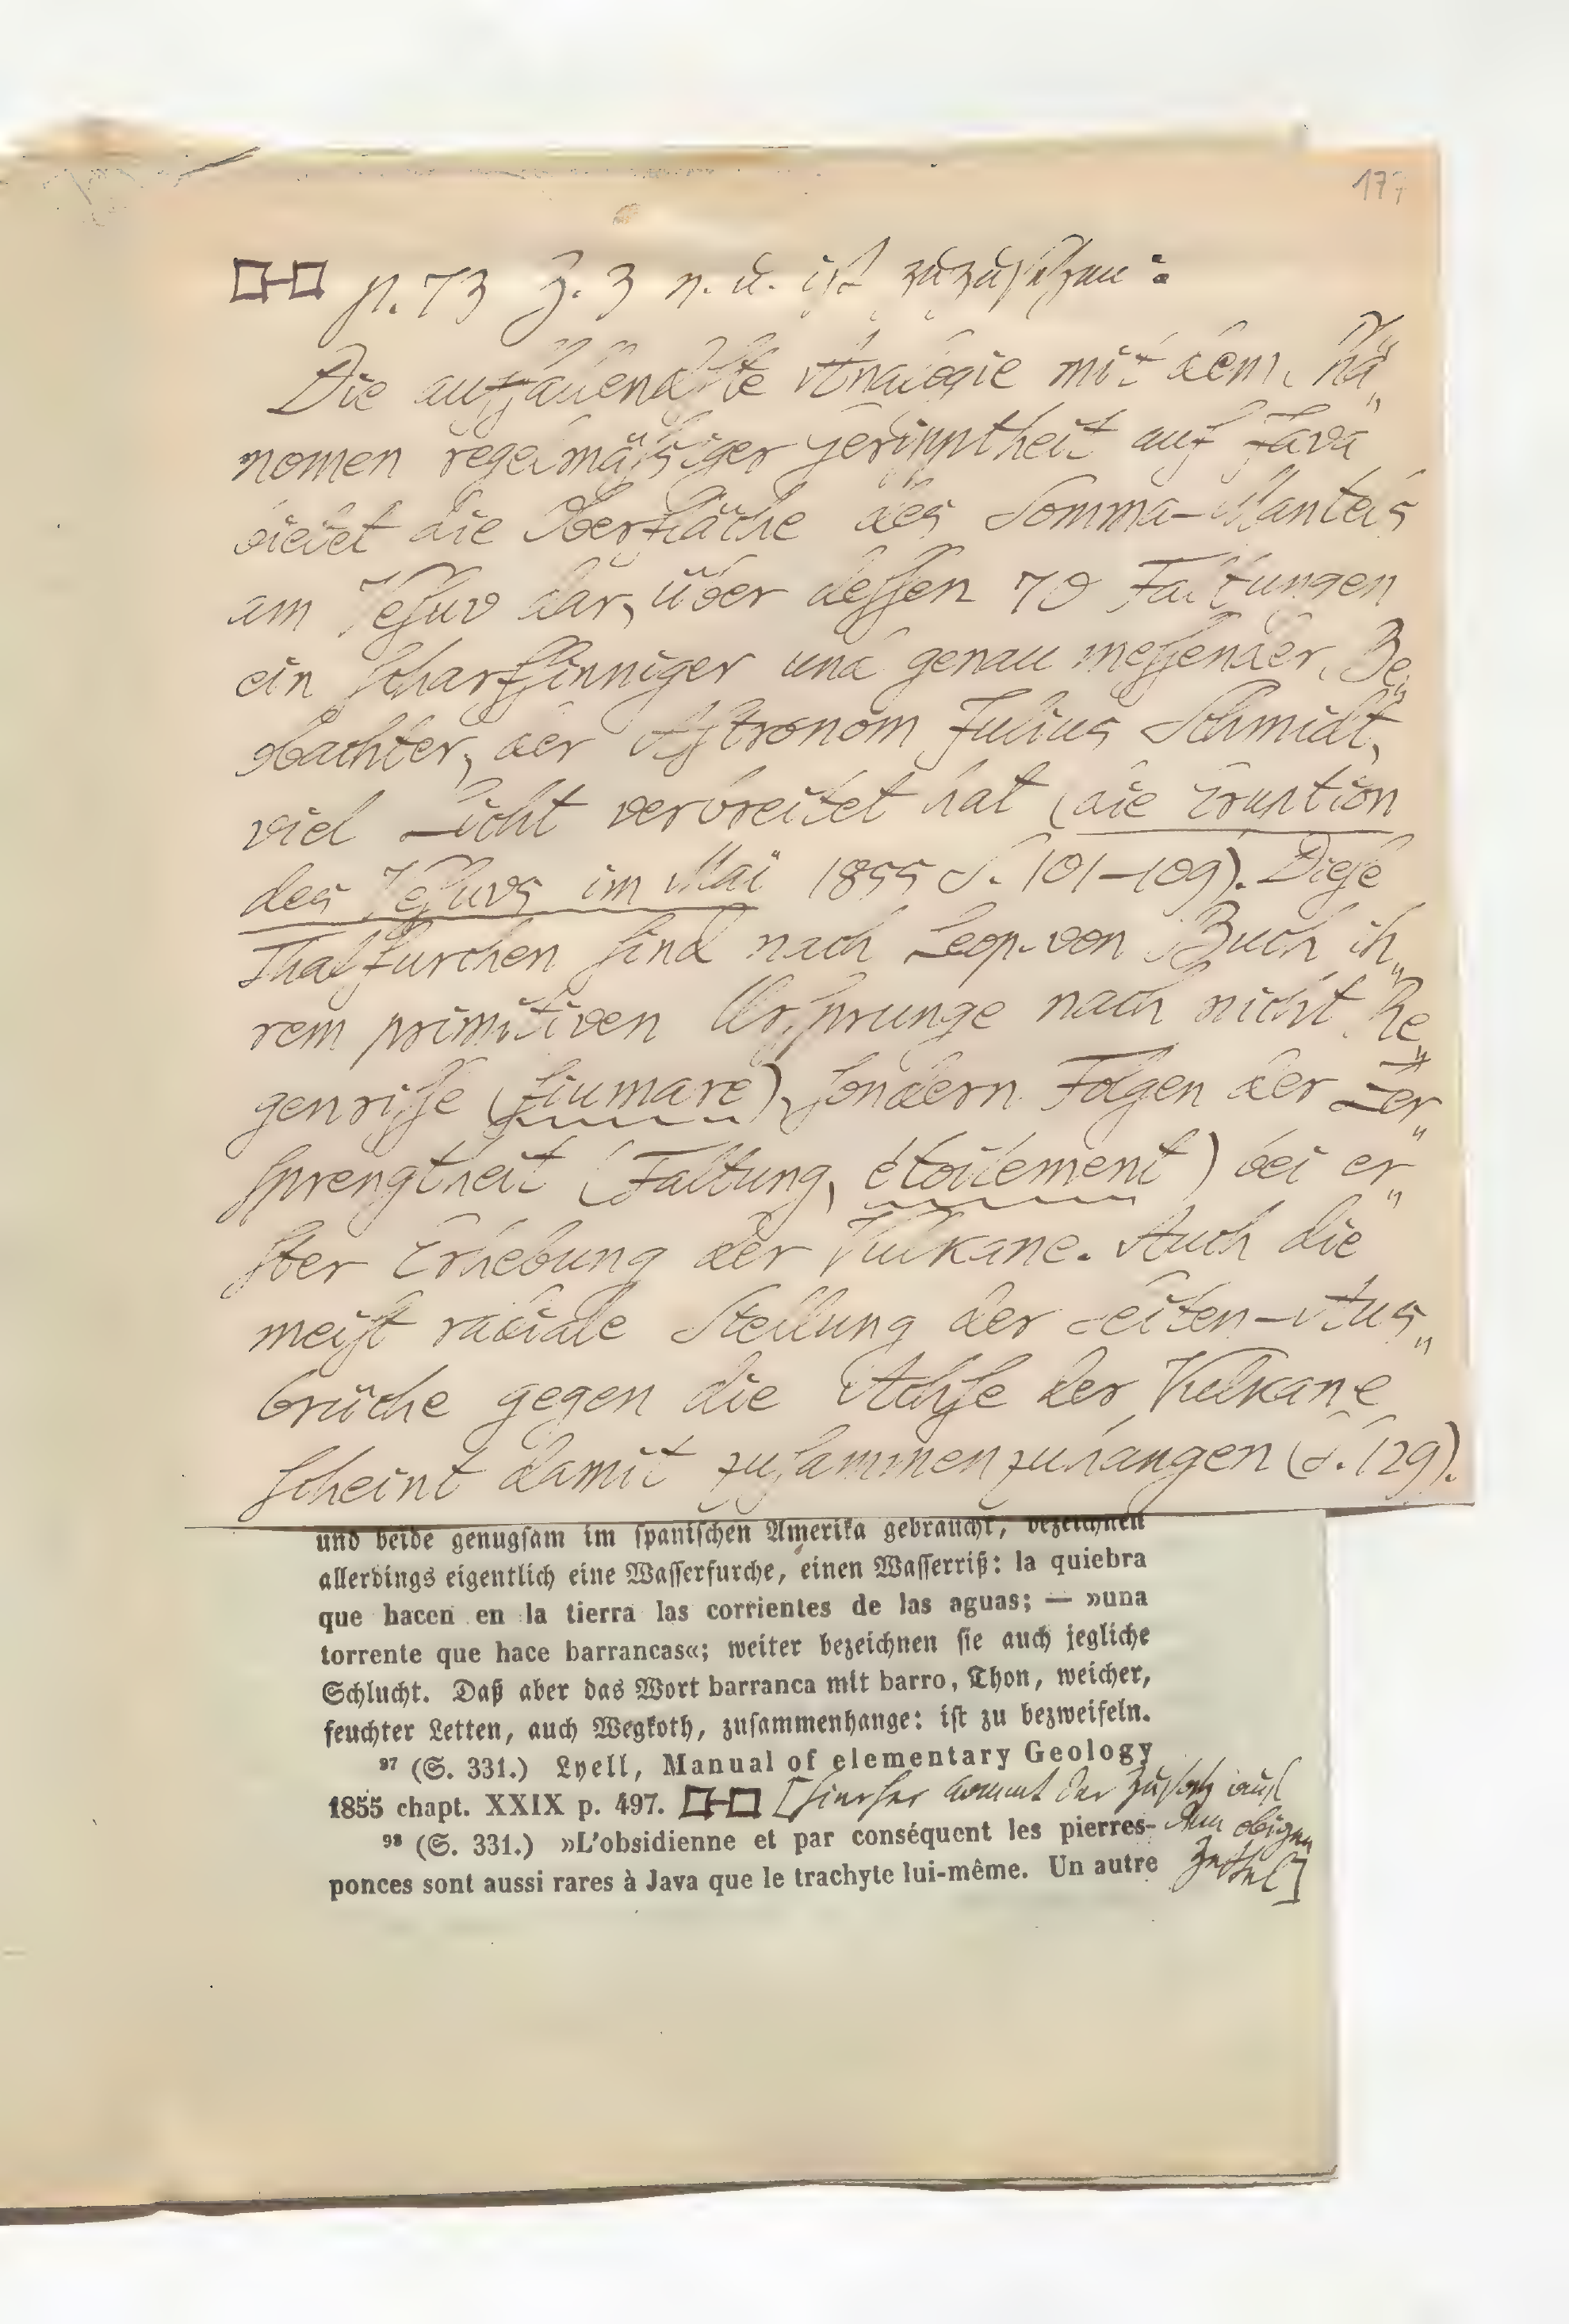 177
p. 73 Z. 3 v. u. ist zuzusetzen:
Die auffallendste Analogie mit dem Phä„
nomen regelmäßiger Geripptheit auf Java
bietet die Oberfläche des Somma-Mantels
am Vesuv dar, über dessen 70 Faltungen
ein scharfsinniger und genau messender Be„
obachter, der Astronom Julius Schmidt,
viel Licht verbreitet hat (die Eruption
des Vesuvs im Mai 1855 S. 101–109). Diese
Thalfurchen sind nach Leop. von Buch ih„
rem primitiven Ursprunge nach nicht Re„
genrisse (fiumare), sondern Folgen der Zer„
sprengtheit (Faltung, étoilement) bei er„
ster Erhebung der Vulkane. Auch die
meist radiale Stellung der Seiten-Aus„
brüche gegen die Achse der Vulkane
scheint damit zusammenzuhangen (S. 129).
und beide genugsam im spanischen Amerika gebraucht, bezeichnen
allerdings eigentlich eine Wasserfurche, einen Wasserriß: la quiebra
que hacen en la tierra las corrientes de las aguas; — »una
torrente que hace barrancas«; weiter bezeichnen sie auch jegliche
Schlucht. Daß aber das Wort barranca mit barro, Thon, weicher,
feuchter Letten, auch Wegkoth, zusammenhange: ist zu bezweifeln.
97 (S. 331.) Lyell, Manual of elementary Geology
1855 chapt. XXIX p. 497. [hierher kommt der Zusatz auf
98 (S. 331.) »L'obsidienne et par conséquent les pierres- dem obigen
ponces sont aussi rares à Java que le trachyte lui-même. Un autre Zettel]